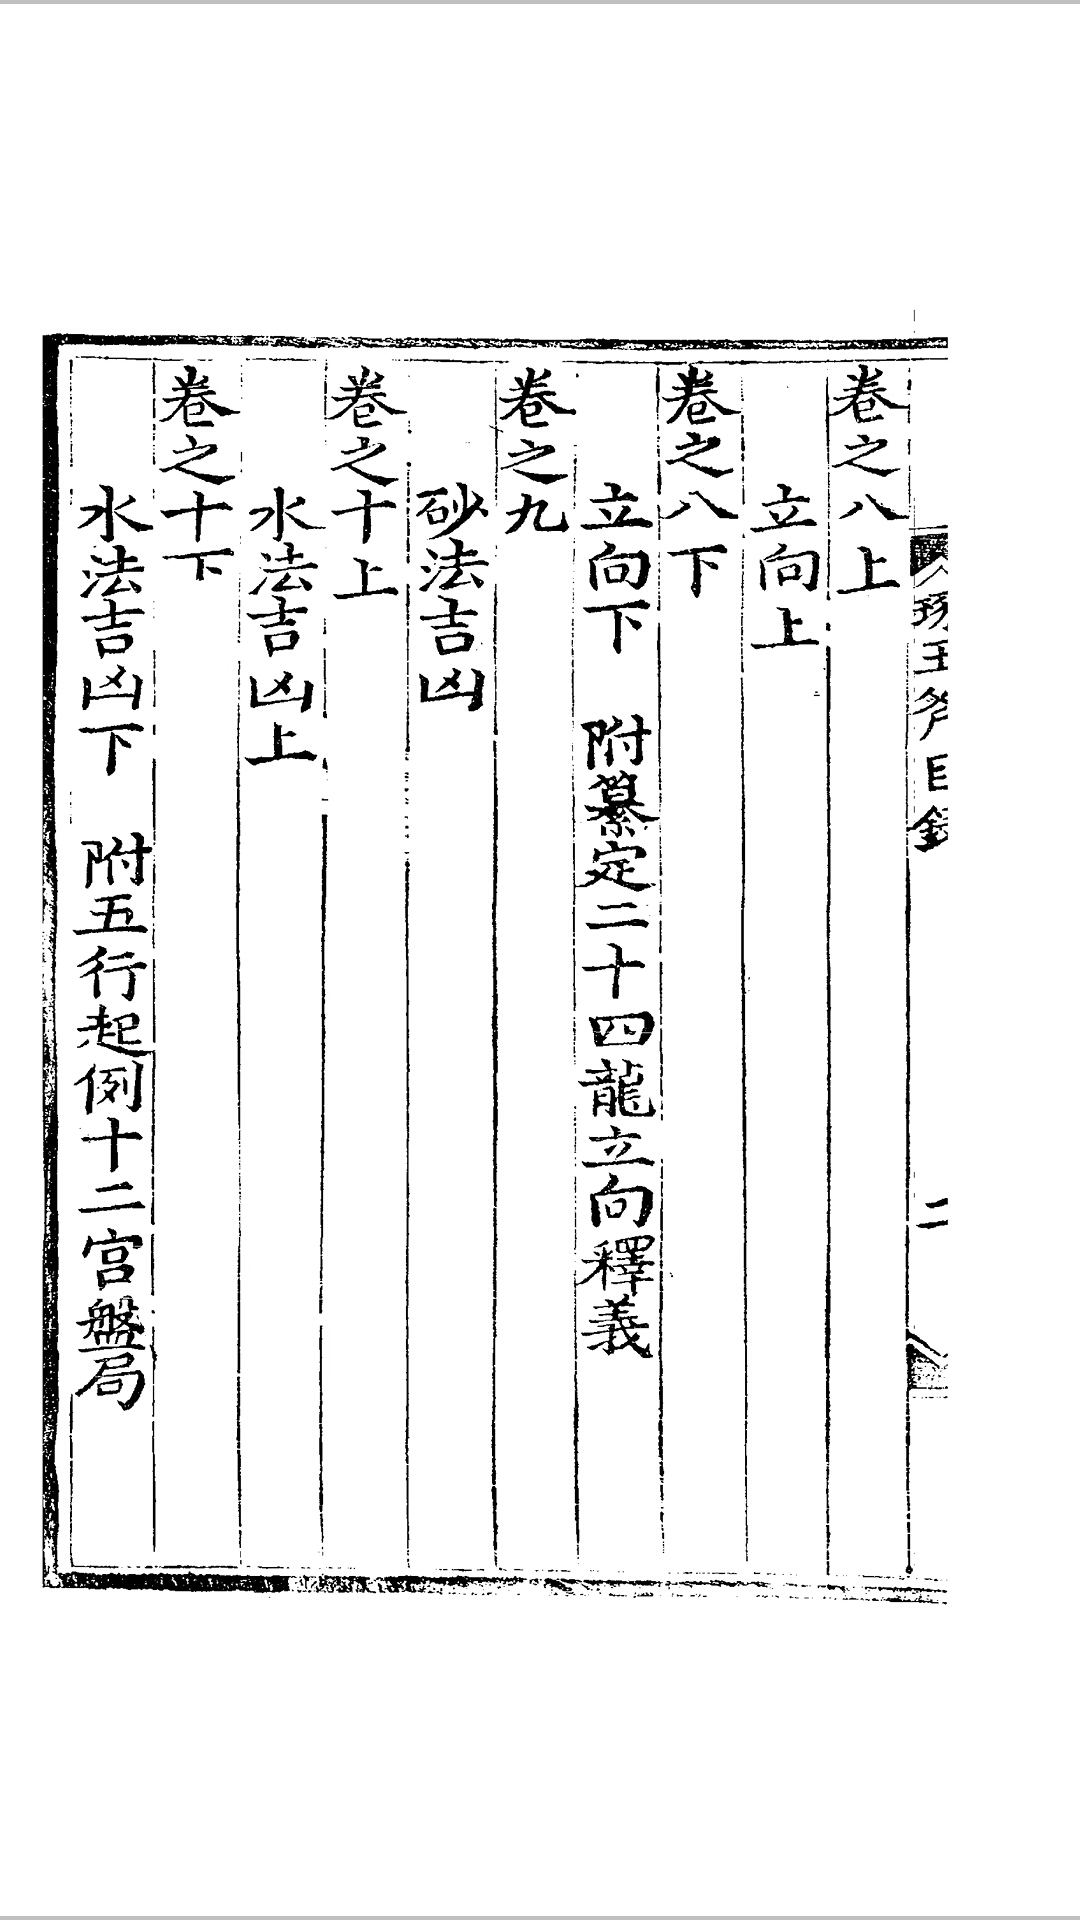 琢玉斧目錄
二
卷之八上
立向上
卷之八下
立向下 附纂定二十四龍立向釋義
卷之九
砂法吉凶
卷之十上
水法吉凶上
卷之十下
水法吉凶下 附五行起例十二宮盤局